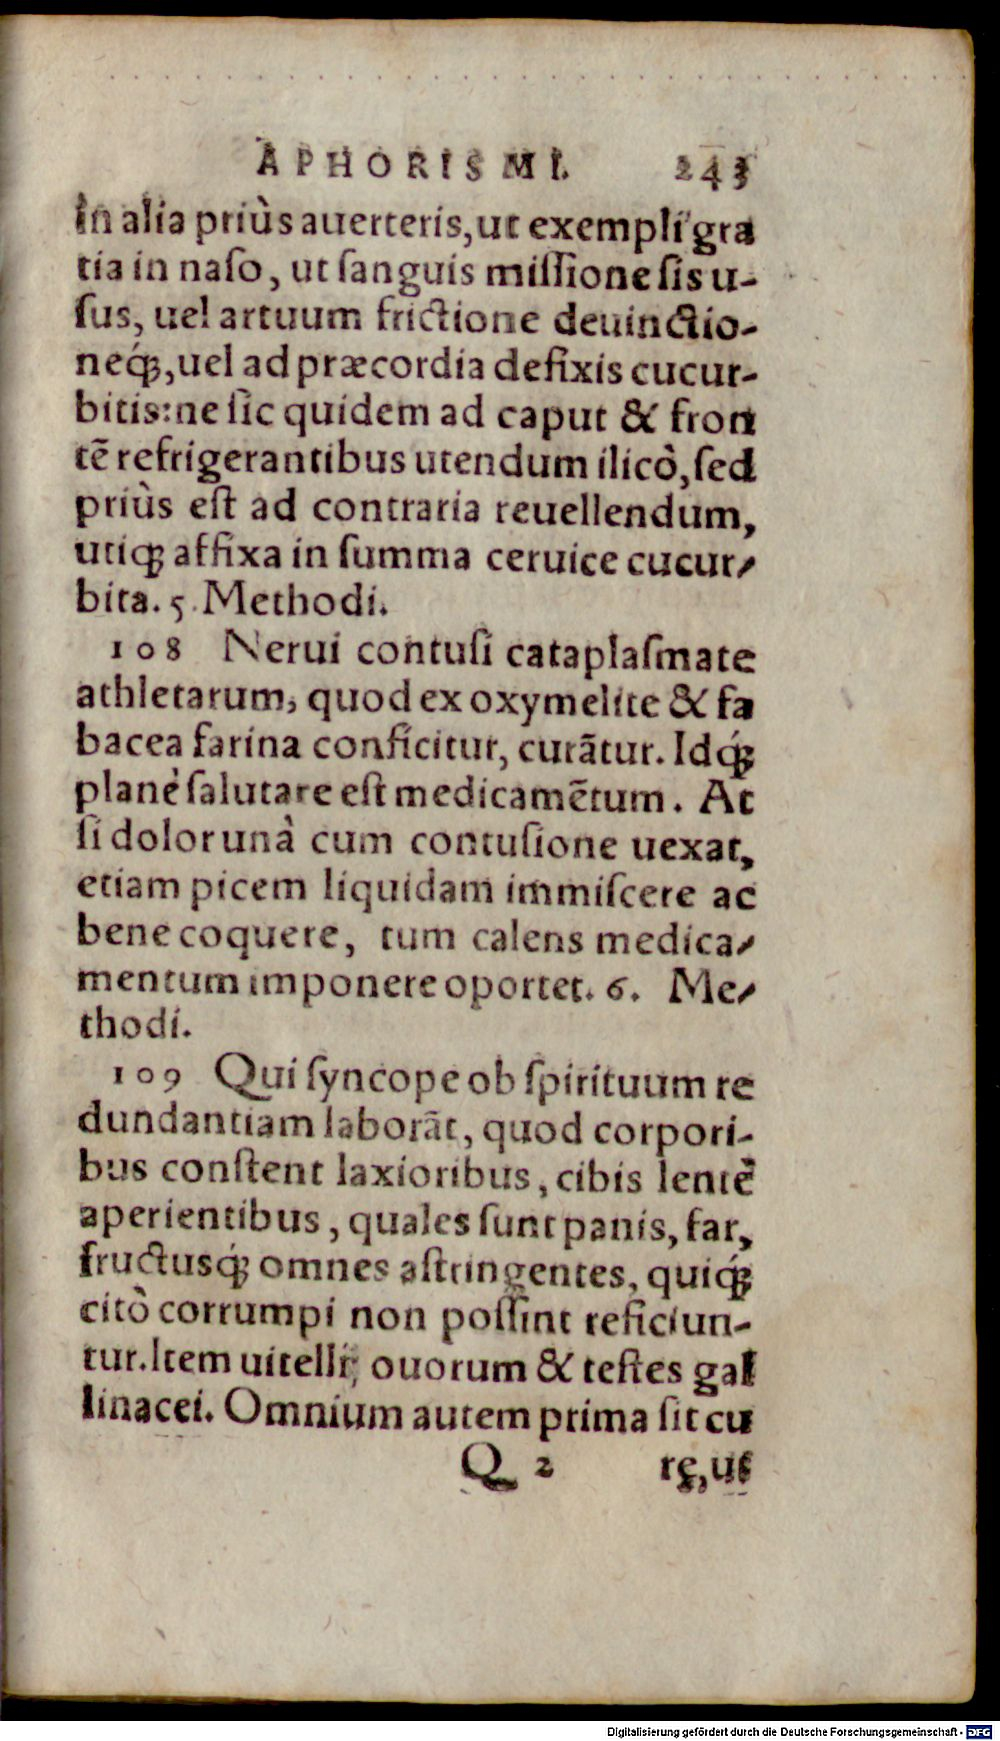 APHORISMI. 243
in alia priùs auerteris, ut exempli gra
tia in naso, ut sanguis missione sis u-
sus, uel artuum frictione deuinctio-
neq́ꝫ, uel ad præcordia defixis cucur-
bitis: ne sic quidem ad caput & fron
tẽ refrigerantibus utendum ilicò, sed
priùs est ad contraria reuellendum,
utiqꝫ affixa in summa ceruice cucur-
bita. 5. Methodi.
108 Nerui contusi cataplasmate
athletarum, quod ex oxymelite & fa
bacea farina conficitur, curãtur. Idq́ꝫ
planè salutare est medicamẽtum. At
si dolor unà cum contusione uexat,
etiam picem liquidam immiscere ac
bene coquere, tum calens medica-
mentum imponere oportet. 6. Me-
thodi.
109 Qui syncope ob spirituum re
dundantiam laborãt, quod corpori-
bus constent laxioribus, cibis lentè
aperientibus, quales sunt panis, far,
fructusq́ꝫ omnes astringentes, quiq́ꝫ
citò corrumpi non possint reficiun-
tur. Item uitelli ouorum & testes gal
linacei. Omnium autem prima sit cu
Q 2 re, ut
Digitalisierung gefördert durch die Deutsche Forschungsgemeinschaft - DFG